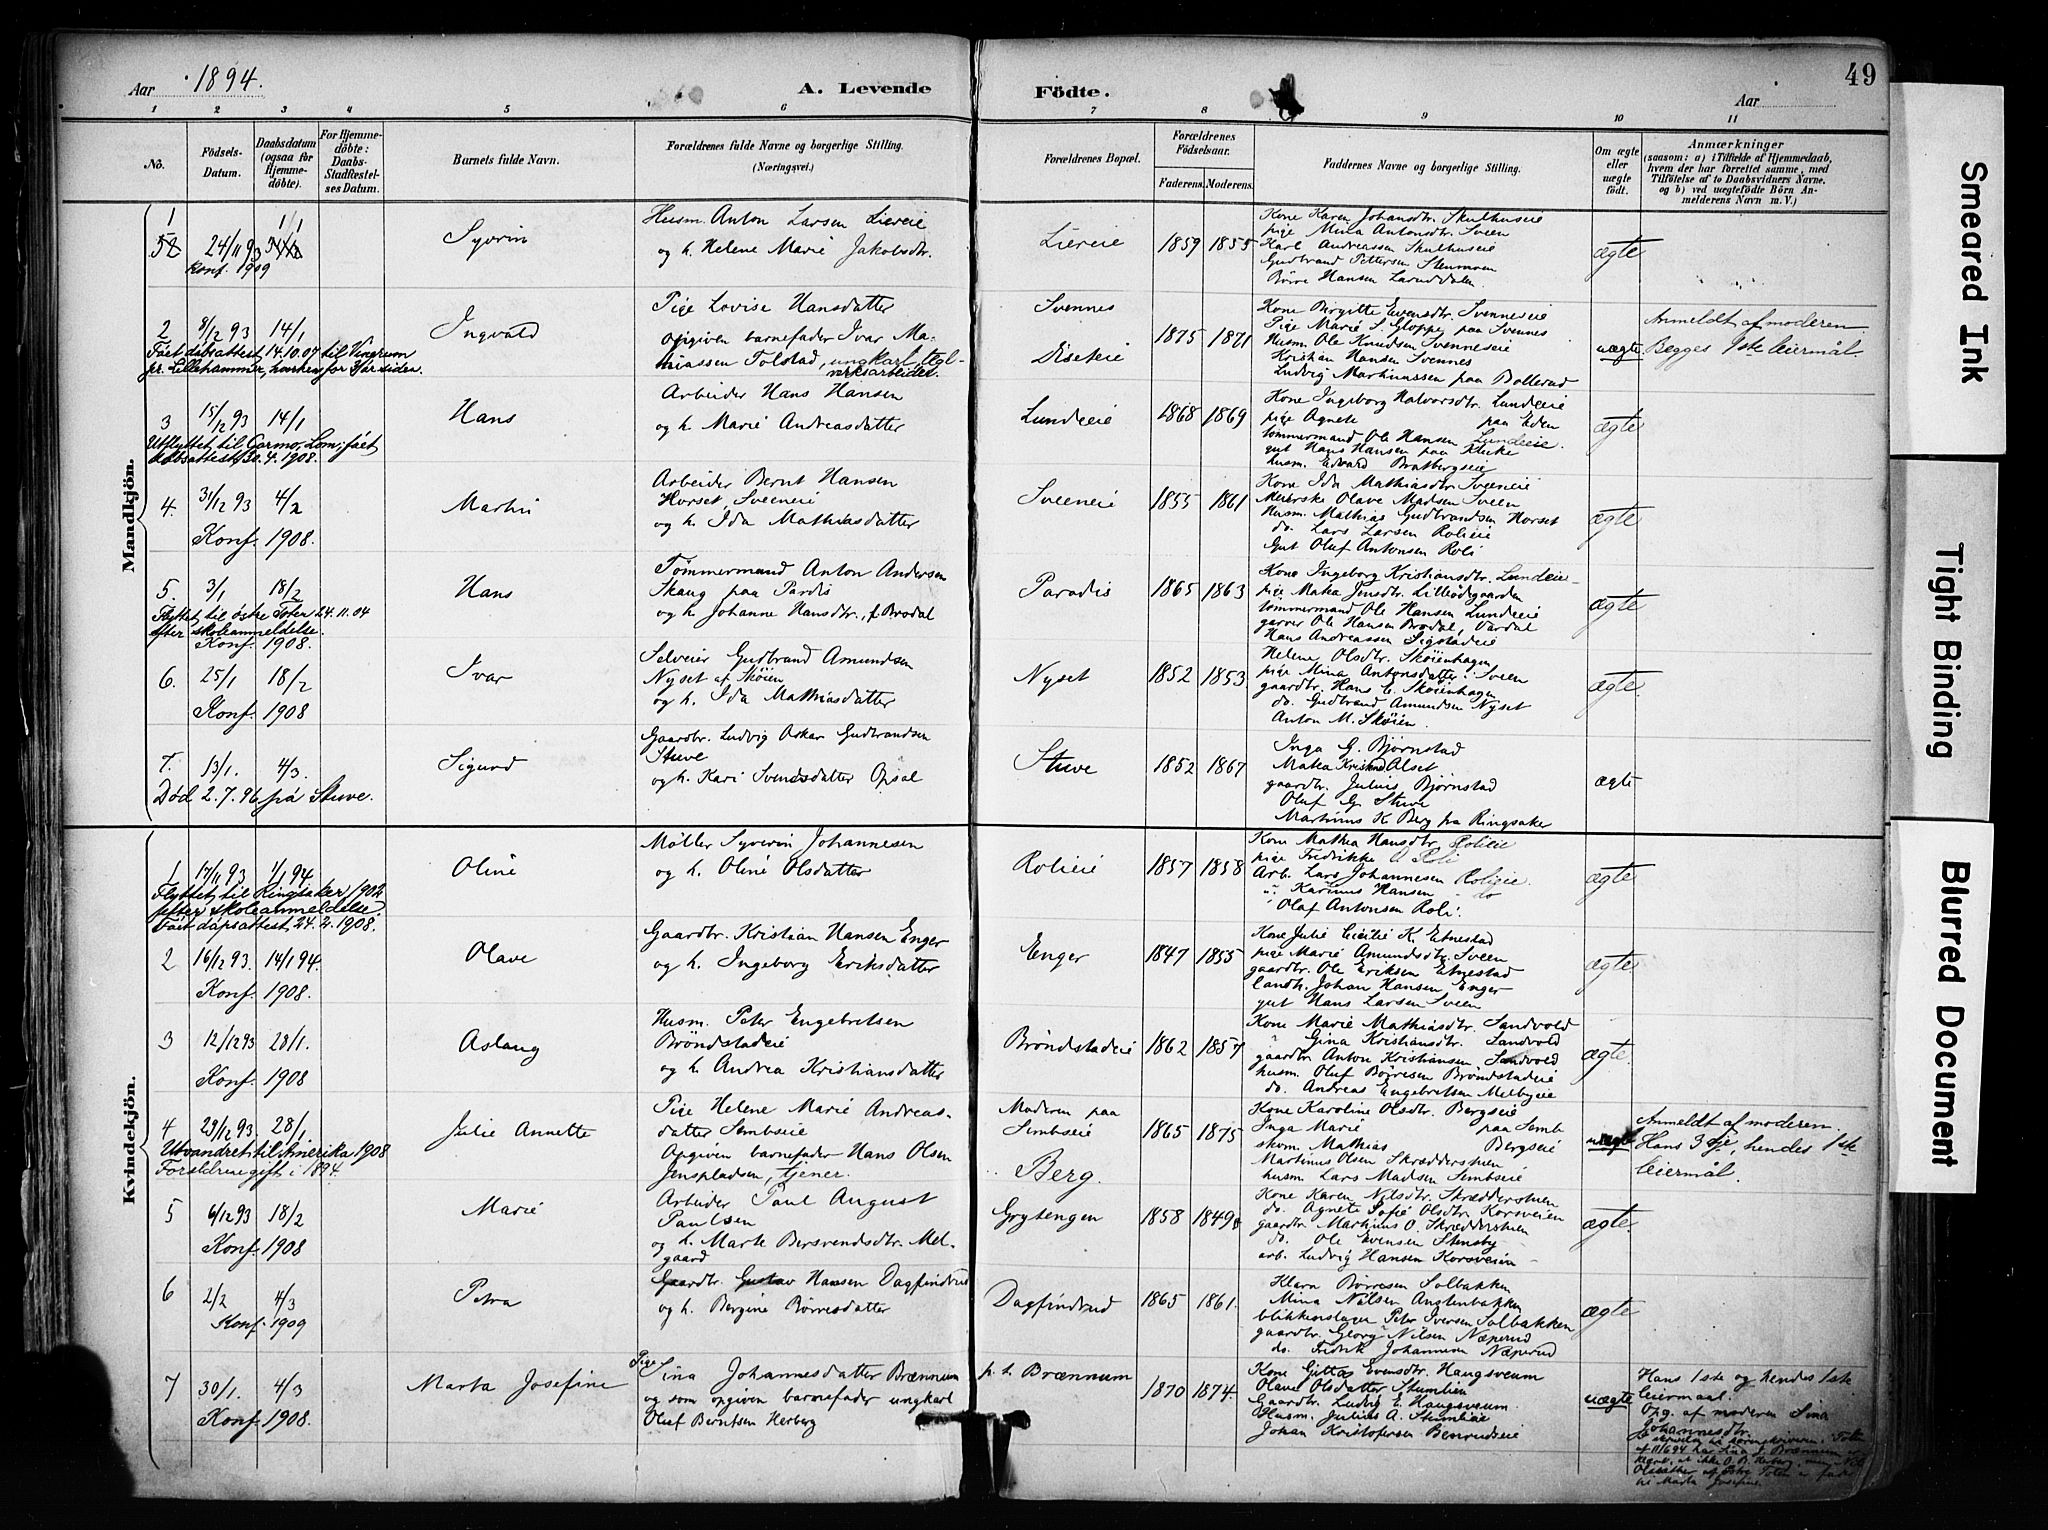 Aar 1894.
A. Levende
Födte.
Aar
49
1 2 3 4 5 6 7 8 9 10 11
No.
Födsels-Datum.
Daabsdatum (ogsaa for Hjemme-döbte).
For Hjemme-döbte: Daabs-Stadfæstel-ses Datum.
Barnets fulde Navn.
Forældrenes fulde Navne og borgerlige Stilling. (Næringsvei.)
Forældrenes Bopæl.
Forældrenes Födselsaar.
Faderens. Moderens.
Faddernes Navne og borgerlige Stilling.
Om ægte eller uægte födt.
Anmærkninger
(saasom: a) i Tilfælde af Hjemmedaab, hvem der har forrettet samme, med Tilföielse af to Daabsvidners Navne, og b) ved uægtefödte Börn An-melderens Navn m. V.)
Mandkjön.
1 24/11 93 1/1 Syvrin
Konf. 1909
Husm. Anton Larsen Liereie
og h. Helene Marie Jakobsdtr.
Liereie 1859 1855
Kone Karen Johansdtr. Skulhuseie
pige Mina Antonsdtr. Sveen
Karl Andreassen Skulhuseie
Gudbrand Pettersen Stenmoen
Børre Hansen Laruddalen
ægte
2 8/12 93 14/1 Ingvald
Fået dåbsattest 14.10.07 til Vingrum
pr. Lillehammer, hvorhen for 4 år siden.
Pige Lovise Hansdatter
opgiven barnefader Ivar Ma-
thiassen Tolstad, ungkarl, tegl-
verksarbeider.
Svennes
Diseteie
1875 1871
Kone Birgitte Evensdtr. Svenneseie
Pige Marie S. Gloppe paa Svennes
Husm. Ole Knudsen Svenneseie
Kristian Hansen Svennes
Ludvig Martinussen paa Bollerud
uægte
Anmeldt af moderen
Begges 1ste leiermål.
3 15/12 93 14/1 Hans
Utflyttet til Garmo, Lom; fået
dåbsattest 30.4.1908.
Arbeider Hans Hansen
og h. Marie Andreasdatter
Lundeie 1868 1869
Kone Ingeborg Halvorsdtr. Lundeie
pige Agnete paa Eden
tømmermand Ole Hansen Lundeie.
gut Hans Hansen paa Kluke
husm. Edvard Bratbergseie
ægte
4. 31/12 93 4/2 Martin
Konf. 1908.
Arbeider Bernt Hansen
Horset, Sveeneie
og h. Ida Mathiasdatter
Sveeneie 1855 1861
Kone Ida Mathiasdtr. Sveeneie
Meierske Olave Madsen Sveen
Husm. Mathias Gudbrandsen Horset
do. Lars Larsen Rolieie
Gut Oluf Antonsen Roli
ægte
5. 3/1 18/2 Hans
Flyttet til østre Toten 24.11.04
efter skoleanmeldelse.
Konf. 1908.
Tømmermand Anton Andersen
Skaug paa Pardis
og h. Johanne Hansdtr., f. Brodal
Paradis 1865 1863
Kone Ingeborg Kristiansdtr. Lundeie
pige Mathea Jensdtr. Lilleødegaarden
tømmermand Ole Hansen Lundeie
garver Ole Hansen Brodal, Vardal
Hans Andreassen Sigstadeie
ægte
6. 25/1 18/2 Ivar
Konf. 1908
Selveier Gudbrand Amundsen
Nyset af Skøien
og h. Ida Mathiasdatter
Nyset 1852 1853
Helene Olsdtr. Skøienhagen
pige Mina Antonsdatter Sveen
gaardbr. Hans C. Skøienhagen
do. Gudbrand Amundsen Nyset
Anton M. Skøien.
ægte
7. 13/1. 4/3. Sigurd
Død 2.7.96 på Stuve.
Gaardbr. Ludvig Oskar Gudbrandsen
Stuve
og h. Kari Svendsdatter Opsal
Stuve 1852 1867
Inga G. Bjørnstad
Mathea Kristensd Alset
gaardbr. Julius Bjørnstad
Oluf G. Stuve
Martinius K. Berg paa Ringsaker
ægte
Kvindekjön.
1 17/11 93 1/1 94 Oline
Flyttet til Ringsaker 1902
efter skoleanmeldelse.
Fået dåpsattest 24.2.1908.
Møller Syverin Johannesen
og h. Oline Olsdatter
Rolieie 1857 1858
Kone Mathea Hansdtr. Rolieie
pige Fredrikke O. Roli
Arb. Lars Johannesen Rolieie.
" Karinus Hansen do
" Olaf Antonsen Roli.
ægte
2 16/12 93. 14/1 94. Olave
Konf. 1908.
Gaardbr. Kristian Hansen Enger
og h. Ingeborg Eriksdatter
Enger 1847 1855
Kone Julie Cecilie K. Etnestad
pige Marie Amundsdtr. Sveen
gaardbr. Ole Eriksen Etnestad
landh. Johan Hansen Enger
gut Hans Larsen Sveen
ægte
3 12/12 93 28/1. Aslaug
Konf. 1908
Husm. Peter Engebretsen
Brøndstadeie
og h. Andrea Kristiansdatter
Brøndstadeie 1862 1857
Kone Marie Mathiasdtr. Sandvold
" Gina Kristiansdtr. Sandvold
gaardbr. Anton Kristiansen Sandvold
husm. Oluf Børresen Brøndstadeie
do. Andreas Engebretsen Melbyeie
ægte
4 29/12 93. 28/1 Julie Annette
Utvandret til Amerika 1908
Forældrene gift i 1894.
Pige Helene Marie Andreas-
datter Sembseie
Opgiven barnefader Hans Olsen
Jenspladsen, tjener.
Moderen paa
Sembseie
Berg.
1865 1875
Kone Karoline Olsdtr. Bergseie
Inga Marie paa Semb
skom. Mathias Bergseie
Martinus Olsen Skrædderstuen
husm. Lars Madsen Sembseie
uægte
Anmeldt af moderen.
Hans 3dje, hendes 1ste
leiermål.
5 6/12 93 18/2 Marie
Konf. 1908
Arbeider Paul August
Paulsen
og h. Marte Bersvendsdtr. Mel-
gaard
Grytengen 1858 1849
Kone Karen Nilsdtr. Skrædderstuen
do. Agnete Sofie Olsdtr. Korsveien
gaardbr. Martinus O. Skrædderstuen
do. Ole Evensen Stensby
arb. Ludvig Hansen Korsveien
ægte
6 2/2 4/3 Petra
Konf. 1909
Gaardbr. Gustav Hansen Dagfindrud
og h. Bergine Børresdatter
Dagfindrud 1865 1861.
Klara Børresen Solbakken
Mina Nilsen Angtenbakken
blikkenslager Peter Iversen Solbakken
gaardbr. Georg Nilsen Næperud
do. Fredrik Johannesen Næperud
ægte
7 30/1. 4/3 Marta Josefine
Konf. 1908.
Pige Sina Johannesdatter Brænnum
og som opgiven barnefader ungkarl
Oluf Berntsen Herberg
p. t. Brænnum 1870 1874.
Kone Gittas Evensdtr. Haugsveum
Olave Olsdatter Stumlien
Gaardbr. Ludvig E. Haugsveum.
Husm. Julius A. Stumlieie
Johan Kristofersen Benrudseie
uægte
Hans 1ste og hendes 1ste
leiermaal.
Opg. af moderen Sina
Johannesdtr.
Smeared Ink
Tight Binding
Blurred Document